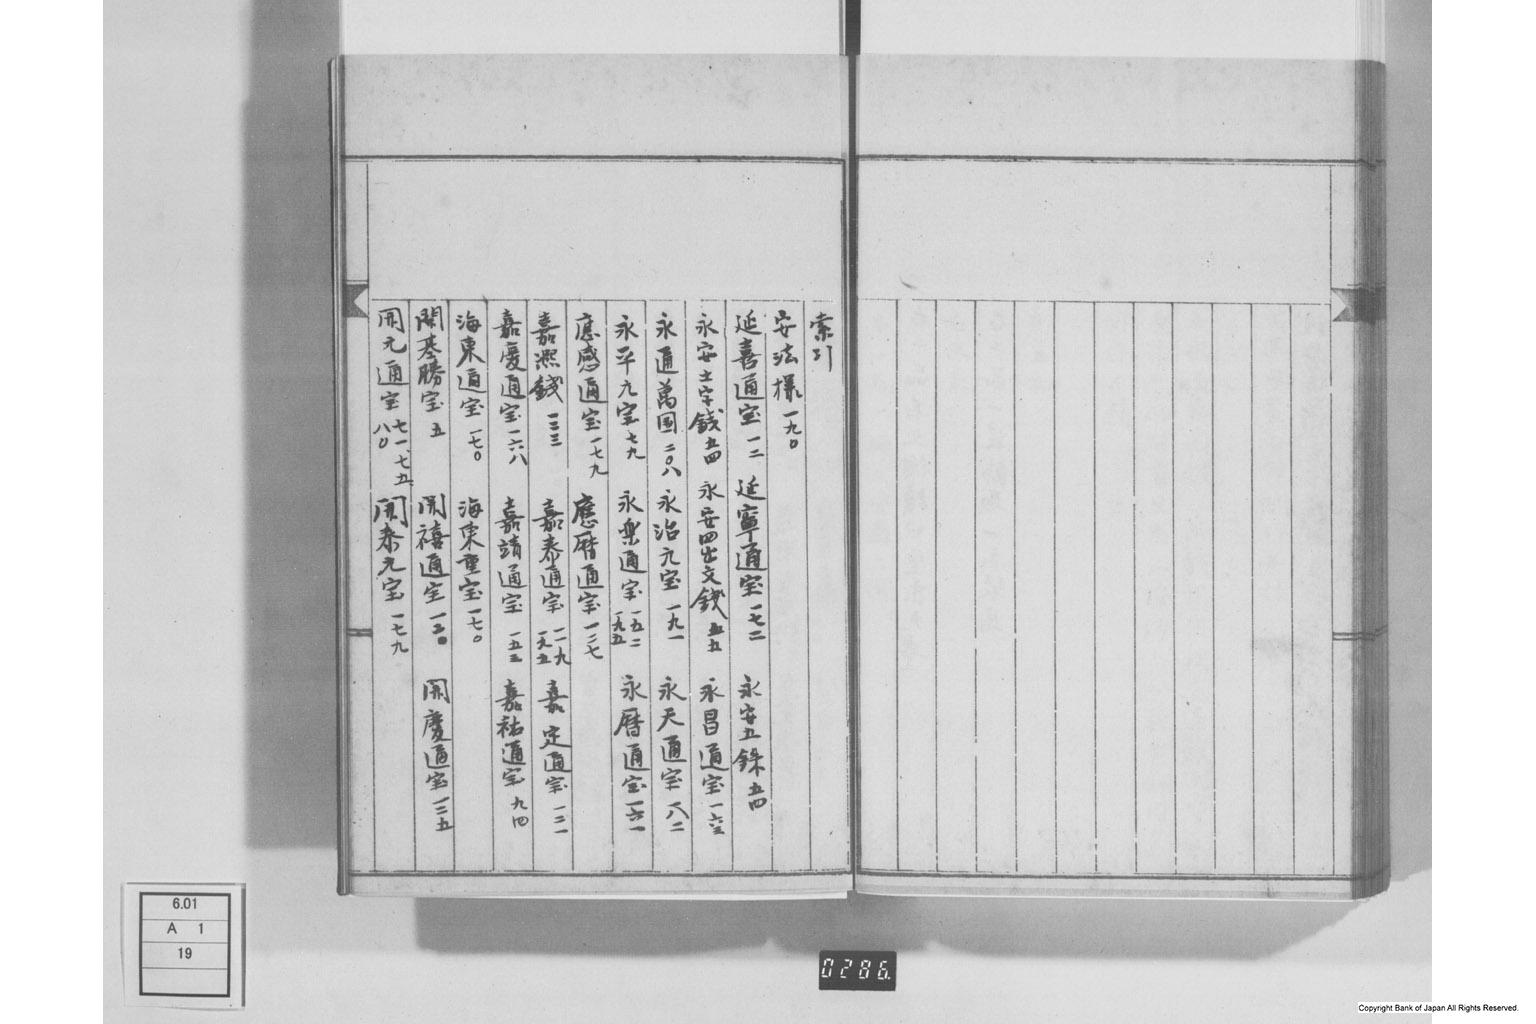 索引
安法様 一九〇
延喜通宝 一二 延寧通宝 一七二 永安五銖 五四
永安土字銭 五四 永安四出文銭 五五 永昌通宝 一六三
永通萬国 二〇八 永治元宝 一九一 永天通宝 一八二
永平元宝 七九 永楽通宝 一五二 一九五 永暦通宝 一六一
應感通宝 一七九 應暦通宝 一二七
嘉熙銭 一三三 嘉泰通宝 一一九 一九五 嘉定通宝 一二一
嘉慶通宝 一六八 嘉靖通宝 一五三 嘉祐通宝 九四
海東通宝 一七〇 海東重宝 一七〇
開基勝宝 五 開禧通宝 一二〇 開慶通宝 一三五
開元通宝 七一、七五 八〇 開泰元宝 一七九
6.01
A 1
19
0286
Copyright Bank of Japan All Rights Reserved.